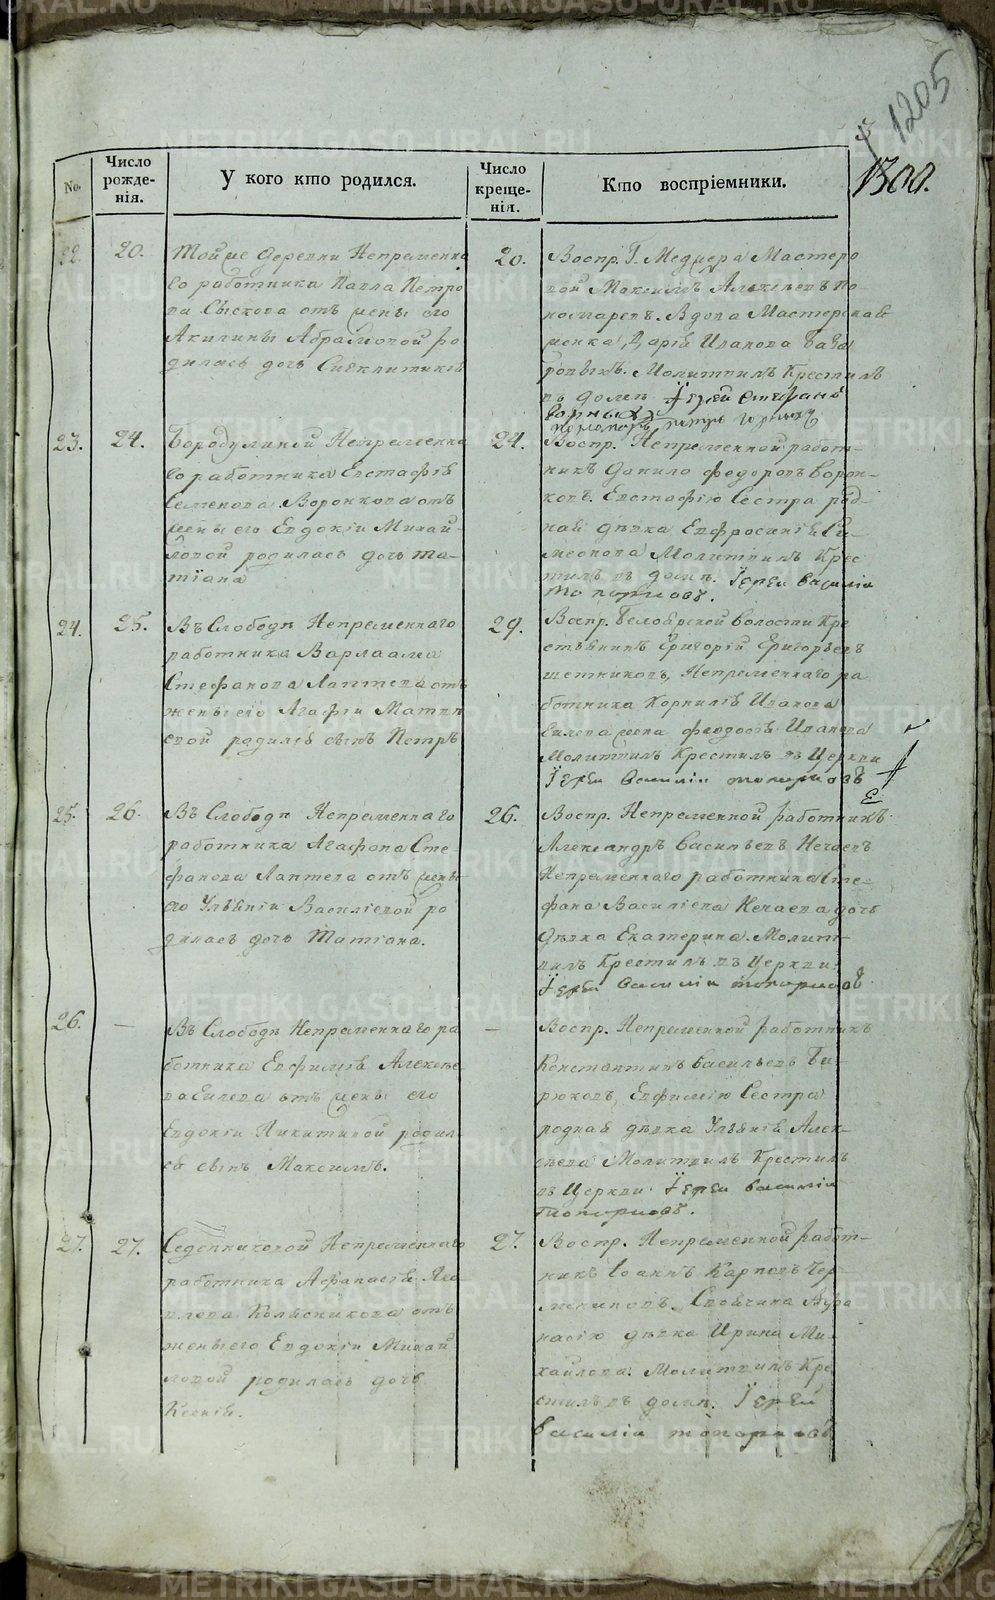 1205
1300.
No.
Число рожде- нія.
У кого кто родился.
Число креще- нія.
Кто воспріемники.
22. 20.
Тойже деревни Непременна
го работника Павла Петро
ва Сыскова отъ жены его
Акилины Абрамовой ро
дилась дочь Синклитикія
20.
Воспр. Г. Меджера Мастеро
вой Максимъ Алексѣевъ По
номаревъ. Вдова Мастерскаѧ
женка Дарія Иванова
Молитвилъ Крестилъ
въ домѣ Іерей Стефанъ
23. 24.
Бородулиной Непременна
го работника Евстафія
Семенова Воронкова отъ
жены его Евдокіи Михай-
ловой родилась дочь Та-
тіана
24.
Воспр. Непременной работ-
никъ Данило Федоровъ Ворон-
ковъ. Евстафію Сестра род-
ная дѣвка Евфросинія Си-
меонова Молитвилъ Крес
тилъ въ домѣ. Іерей Василіи
Топорковъ.
24. 25.
Въ Слободѣ Непременнаго
работника Варлаама
Стефанова Лаптева отъ
жены его Агафіи Матвѣ
евой родился сынъ Петръ
29.
Воспр. Белоярской волости Кре
стьянинъ Григорій Григорьевъ
щетниковъ, Непременнаго ра
ботника Корнилія Иванова
Евлева жена Феодосія Иванова
Молитвилъ Крестилъ въ Церкви
Іерей Василіи Топорковъ
25. 26.
Въ Слободѣ Непременнаго
работника Агафона Сте
фанова Лаптева отъ жены
его Ульяніи Василіевой ро
дилась дочь Татіана.
26.
Воспр. Непременной работникъ
Александръ Васильевъ Нечаевъ
Непременнаго работника Сте-
фана Василіева Нечаева дочь
Дѣвка Екатерина. Молит-
вилъ Крестилъ въ Церкви.
Іерей Василіи Топорковъ
26. —
Въ Слободѣ Непременнаго ра
ботника Евфимія Алексѣе
ва Евлева отъ жены его
Евдокіи Никитиной родил-
ся сынъ Максимъ.
—
Воспр. Непременной работникъ
Константинъ Васильевъ Би-
рюковъ, Евфимію Сестра
родная дѣвка Ульянія Алек-
сѣева Молитвилъ Крестилъ
въ Церкви. Іерей Василіи
Топорковъ.
27. 27.
Непременнаго
работника Афанасія Яко
влева Колясникова отъ
жены его Евдокіи Михай
ловой родилась дочь
Ксенія.
27.
Воспр. Непременной работ-
никъ Іоаннъ Карповъ Чер-
Своячина Афа
насію дѣвка Ирина Ми-
хайлова. Молитвилъ Кре
стилъ въ домѣ. Іерей
Василіи Топорковъ
METRIKI.GASO-URAL.RU